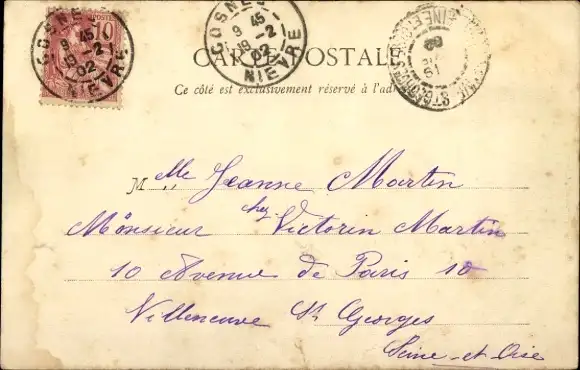 POSTE
10
COSNE
9 45
19 -2
02
NIEVRE
COSNE
9 45
19 -2
02
NIEVRE
CARTE POSTALE
Ce côté est exclusivement réservé à l'adr
Mlle Jeanne Martin
chez
Monsieur Victorin Martin
10 Avenue de Paris 10
Villeneuve St Georges
Seine-et-Oise